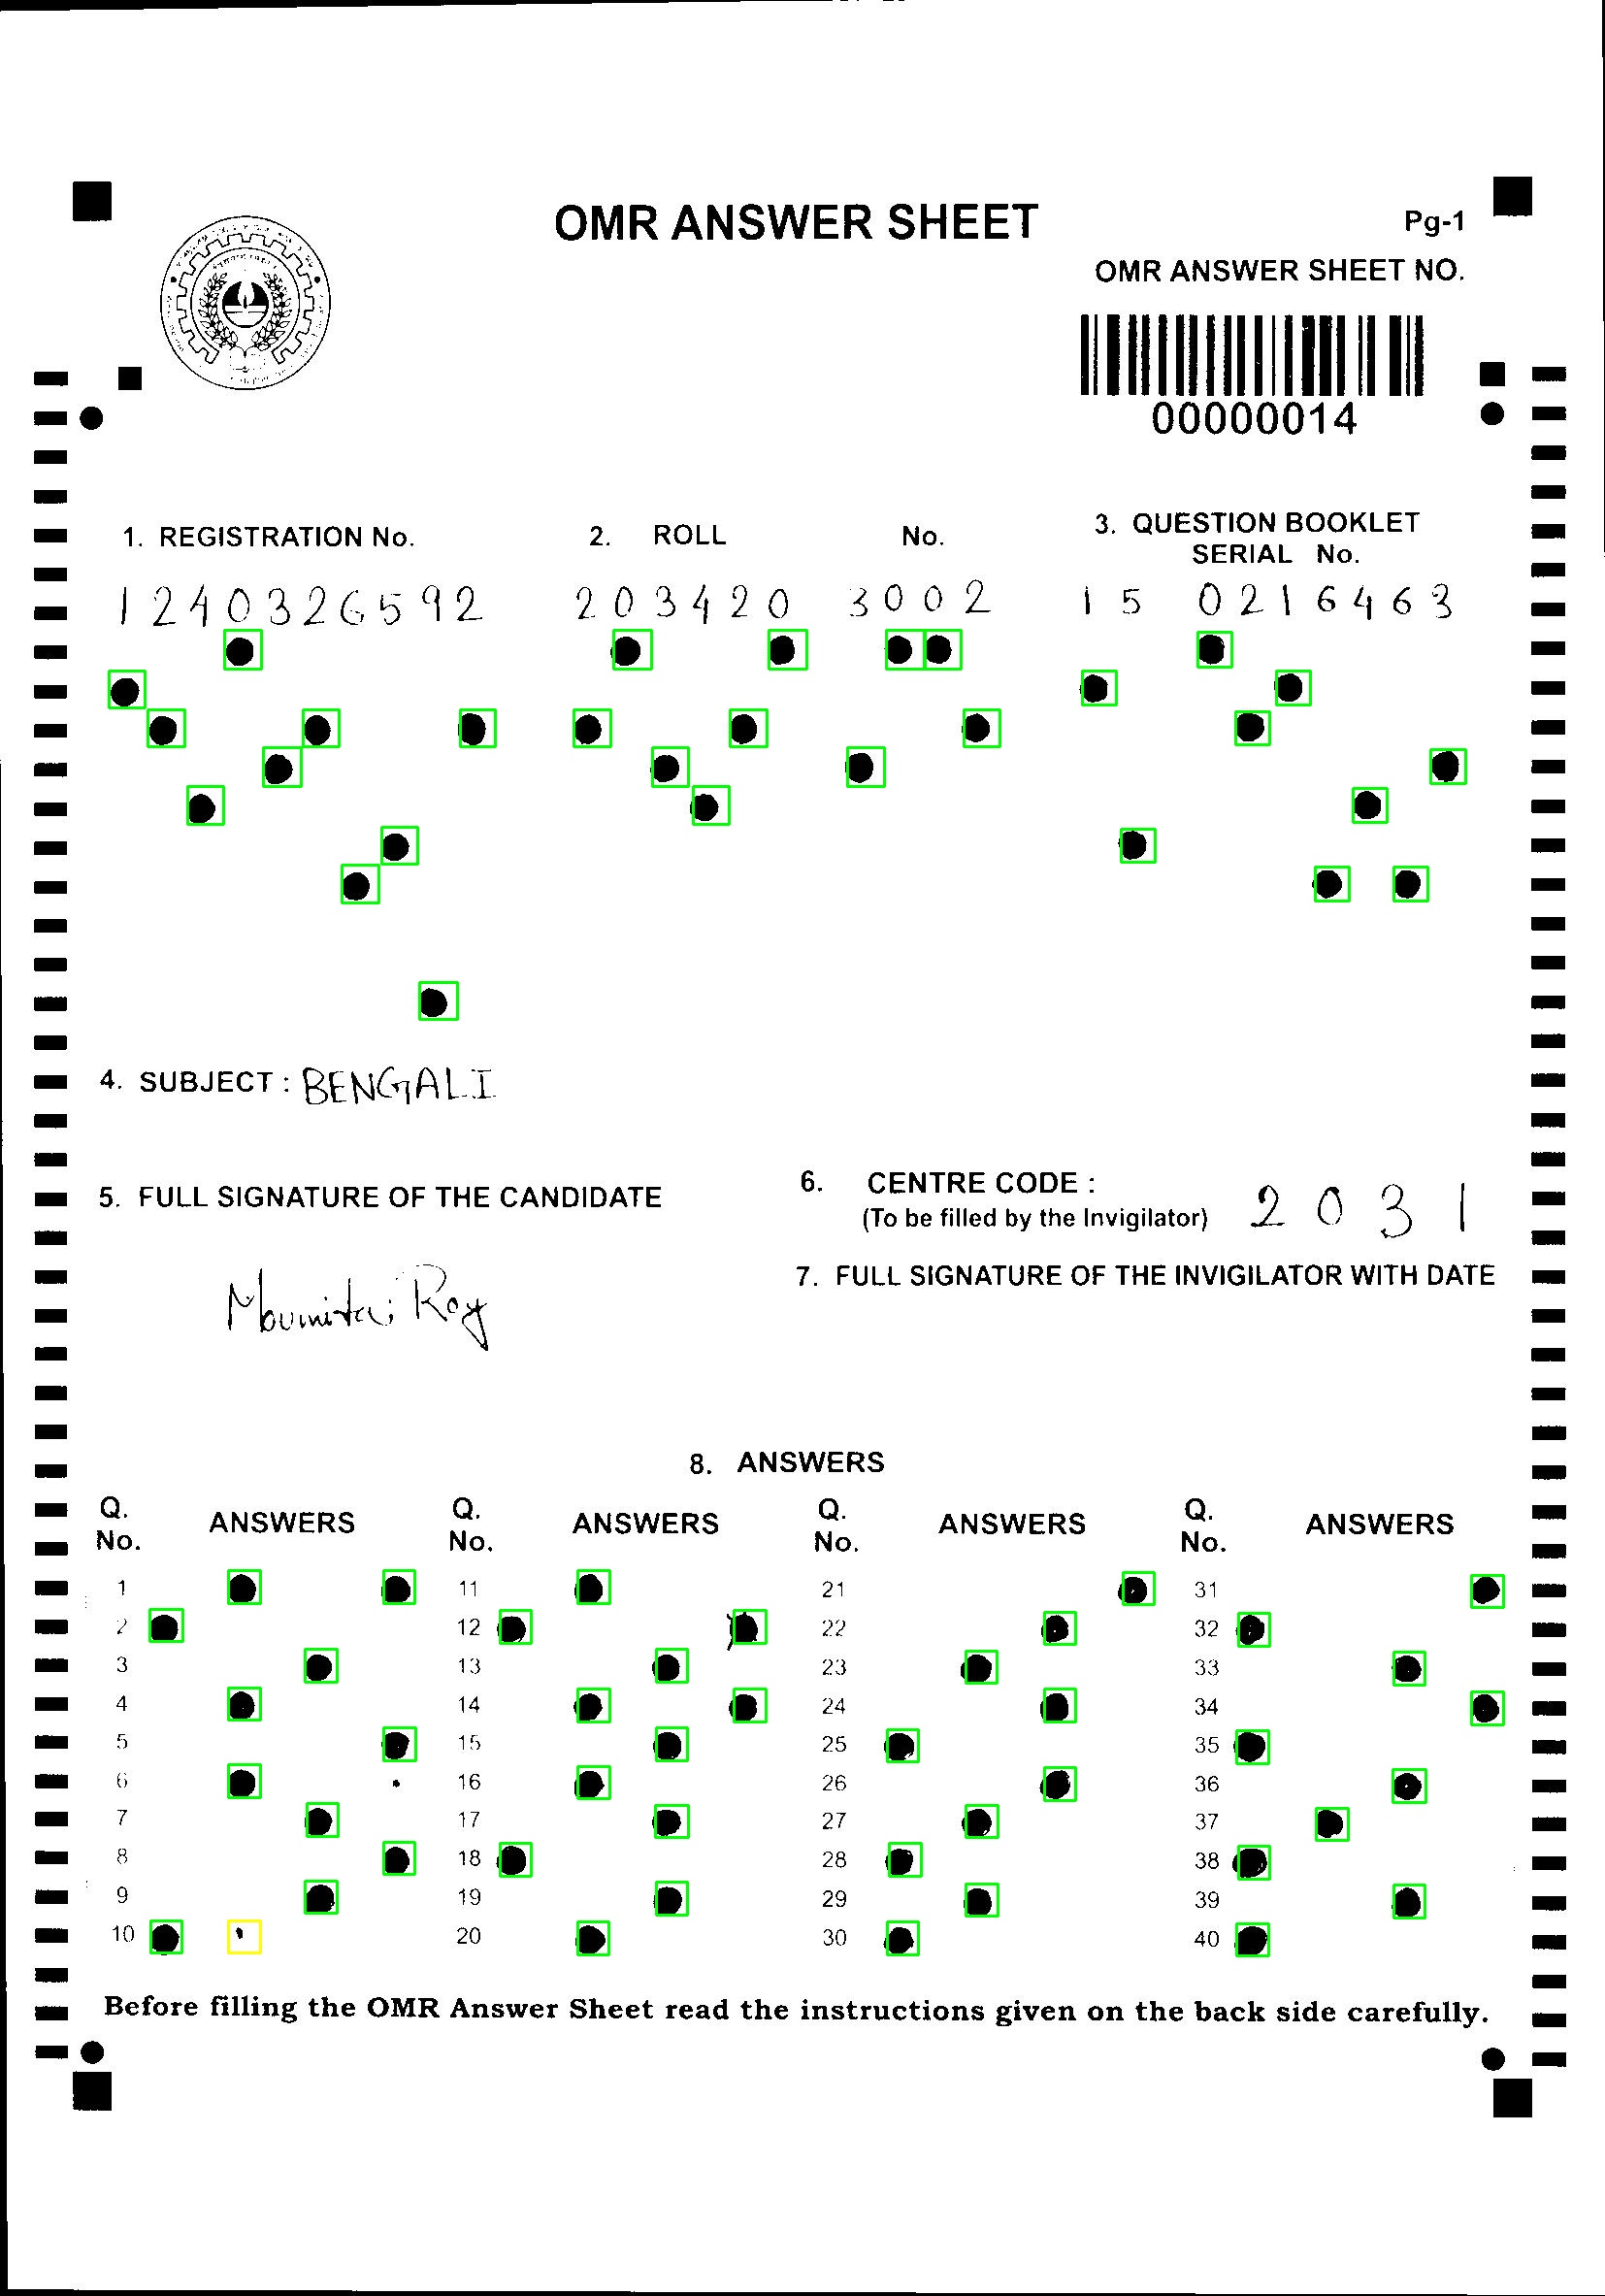 OMR ANSWER SHEET
Pg-1
OMR ANSWER SHEET NO.
00000014
1. REGISTRATION No.
2. ROLL No.
3. QUESTION BOOKLET
SERIAL No.
1240326592
203420 3002
15 0216463
4. SUBJECT : BENGALI
5. FULL SIGNATURE OF THE CANDIDATE
6. CENTRE CODE : 2031
(To be filled by the Invigilator)
7. FULL SIGNATURE OF THE INVIGILATOR WITH DATE
Moumita Roy
8. ANSWERS
Q. No. ANSWERS Q. No. ANSWERS Q. No. ANSWERS Q. No. ANSWERS
1 11 21 31
2 12 22 32
3 13 23 33
4 14 24 34
5 15 25 35
6 16 26 36
7 17 27 37
8 18 28 38
9 19 29 39
10 20 30 40
Before filling the OMR Answer Sheet read the instructions given on the back side carefully.